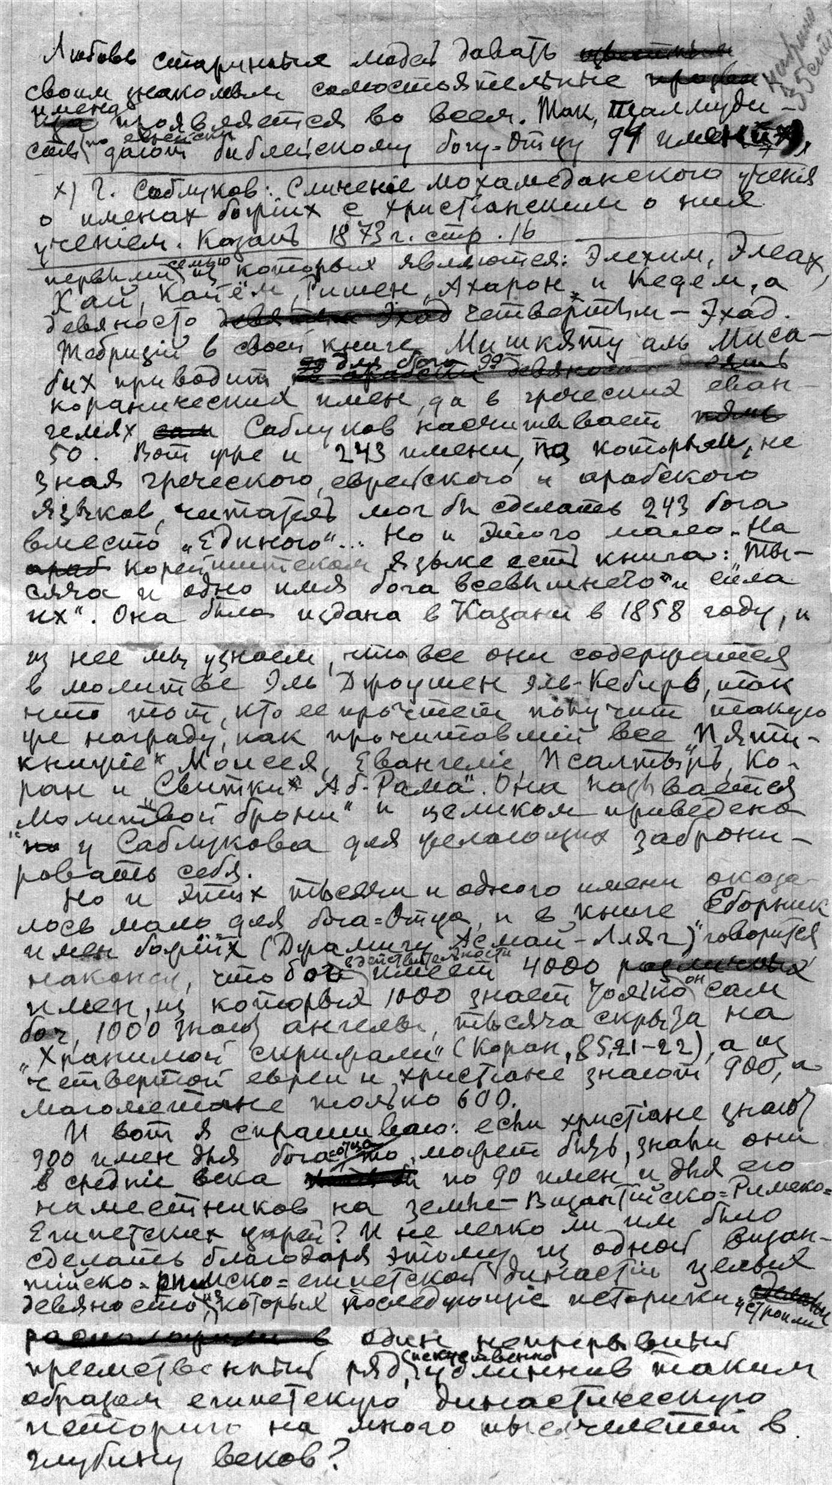 Любовь старинных людей давать
своим знакомым самостоятельные
имена проявляется во всем. Так, талмуди-
сты по еврейски дают библейскому богу-Отцу 94 имени х)
х) Г. Саблуков: Сличенiе мохамеданского ученiя
о именах божiих с христiанским о них
ученiем. Казань 1873 г. стр. 16
первыми семью из которых являются: Элехим, Элеах,
Хаи, Кайем, Ришен, Ахарон и Кедем, а
девяносто четвертым – Эхад.
Тебризiй в своей книге Мишкяту аль Миса-
бих приводит для бога 99
коранических имен, да в греческих еван-
гелиях Саблуков насчитывает
50. Вот уже и 243 имени, по которым, не
зная греческого, еврейского и арабского
языков, читатель мог бы сделать 243 бога
вместо „Единого"... Но и этого мало. На
языке есть книга: „Ты-
сяча и одно имя бога всевышнего и сила
их". Она была издана в Казани в 1858 году, и
из нее мы узнаем, что все они содержатся
в молитве Эль Джоушен эль-Кебирь, так
что тот, кто ее прочтет получит такую
же награду, как прочитавшiй все „Пяти-
книжiе" Моисея, Евангелiе, Псалтырь, Ко-
ран и „Свитки Аб-Рама". Она называется
„Молитвой брони" и целиком приведена
у Саблукова для желающих заброни-
ровать себя.
Но и этих тысячи и одного имени оказа-
лось мало для бога=Отца, и в книге „Сборник
имен божiих (Джамигу Асмаи-Лляг)" говорится
наконец, что бог в действительности имеет 4000
имен, из которых 1000 знает только он сам
бог, 1000 знают ангелы, тысяча скрыта на
„Хранимой скрижали" (Коран, 85,21–22), а из
четвертой евреи и христiане знают 900, а
магометане только 600.
И вот я спрашиваю: если христiане знают
900 имен для бога=отца, то, может быть, знали они
в среднiе века по 90 имен и для его
наместников на земле – Византiйско=Римско=
Египетских царей? И не легко ли им было
сделать благодаря этому из одной Визан-
тiйско=римско=египетской династiи целых
девяносто, из которых последующiе историки устроили
один непрерывный
преемственный ряд, искусственно удлиннив таким
образом египетскую династическую
историю на много тысячелетiй в
глубину веков?